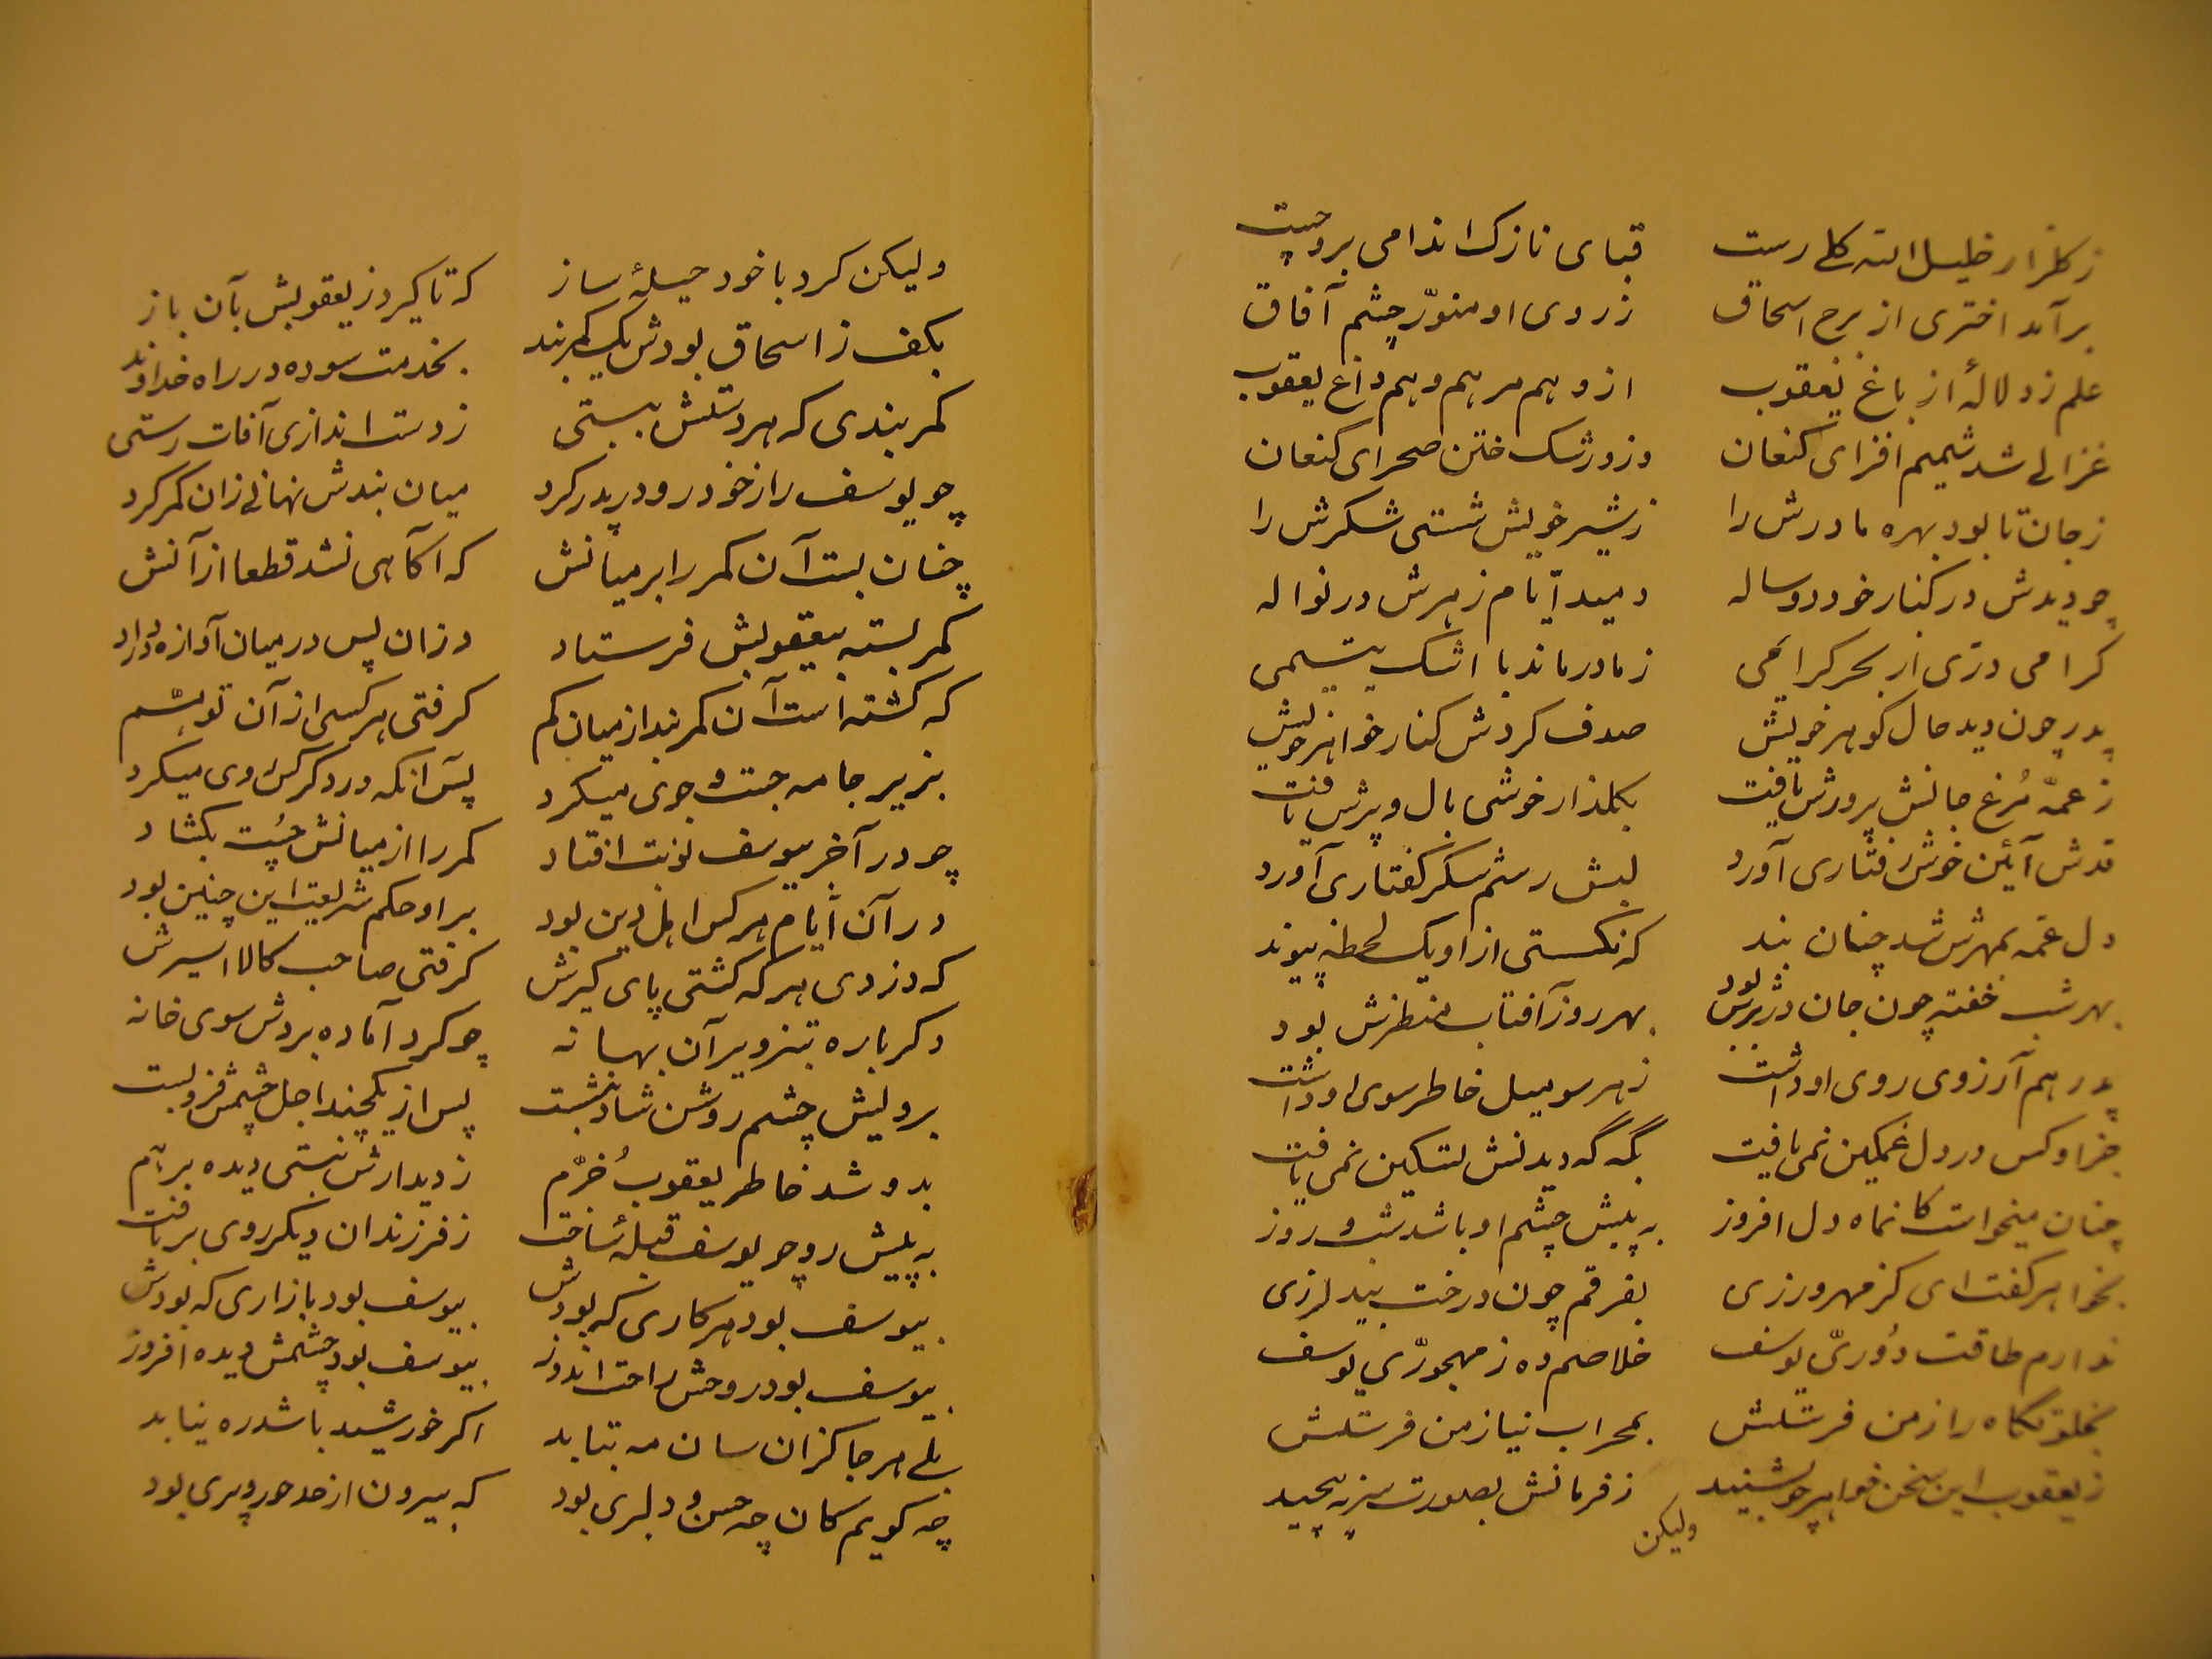 ز کلزار خلیل الله کلے رست قبای نازک اندامی برو چست
برآمد اختری از برج اسحاق ز روی او منوّر چشم آفاق
علم زد لالهٔ از باغ یعقوب ازو هم مرهم و هم داغ یعقوب
غزالے شد شمیم افزای کنعان وزو رشک ختن صحرای کنعان
ز جان تا بود بهره مادرش را ز شیر خویش شستی شکرش را
چو دیدش در کنار خود دو ساله دمید ایّام زهرش در نواله
کرامی درّی از بحر کرایمی ز مادر ماند با اشک یتیمی
پدر چون دید حال کوهر خویش صدف کردش کنار خواهر خویش
ز عمّه مُرغ جانش پرورش یافت بکلذار خوشی بال و پرش یافت
قدش آئین خوش رفتاری آورد لبش رسم شکر کفتاری آورد
دل عمّه بمهرش شد چنان بند که نکستی از او یک لحظه پیوند
بهر شب خفته چون جان در برش بود بهر روز آفتاب منظرش بود
پدر هم آرزوی روی او داشت ز هر سو میل خاطر سوی او داشت
جز او کس در دل غمکین نمی یافت بگه گه دیدنش تسکین نمی یافت
چنان میخواست کانماه دل افروز به پیش چشم او باشد شب و روز
بخواهر کفت ای کز مهرورزی بفرقم چون درخت بید لرزی
ندارم طاقت دُوریّ یوسف خلاصم ده ز مهجوریّ یوسف
بخلوتکاه راز من فرستش بمحراب نیاز من فرستش
ز یعقوب این سخن خواهر چو بشنید ز فرمانش بصورت سر نپیچید
ولیکن
ولیکن کرد با خود حیلهٔ ساز که تا کیرد ز یعقوبش بآن باز
بکف ز اسحاق بودش یک کمربند بخدمت سوده در راه خداوند
کمربندی که هر دستش ببستی ز دست اندازی آفات رستی
چو یوسف را ز خود رو در پدر کرد میان بندش نهانے زان کمر کرد
چنان بست آن کمر را بر میانش که آکاهی نشد قطعا از آنش
کمر بسته بیعقوبش فرستاد وزان پس در میان آوازه در داد
که کشته است آن کمربند از میان کم کرفتی هر کسی از آن توهّم
بزیر جامه جست و جوی میکرد پس آنکه در دکر کس روی میکرد
چو در آخر بیوسف نوبت افتاد کمر را از میانش چُست بکشاد
در آن ایّام هر کس اهل دین بود بر او حکم شریعت این چنین بود
که دزدی هر که کشتی پای کیرش کرفتی صاحب کالا اسیرش
دکر باره بتزویر آن بهانه چو کرد آماده بردش سوی خانه
برویش چشم روشن شاد بنشست پس از یکچند اجل چشمش فرو بست
بدو شد خاطر یعقوب خُرّم ز دیدارش نبستی دیده بر هم
به پیش رو چو یوسف قبلهٔ ساخت ز فرزندان دیکر روی بر تافت
بیوسف بود هر کاری که بودش بیوسف بود بازاری که بودش
بیوسف بود روحش راحت اندوز بیوسف بود چشمش دیده افروز
بلے هر جا کزان سان مه بتابد اکر خورشید باشد ره نیابد
چه کویم کان چه حسن و دلبری بود که بیرون از حد حور و پری بود